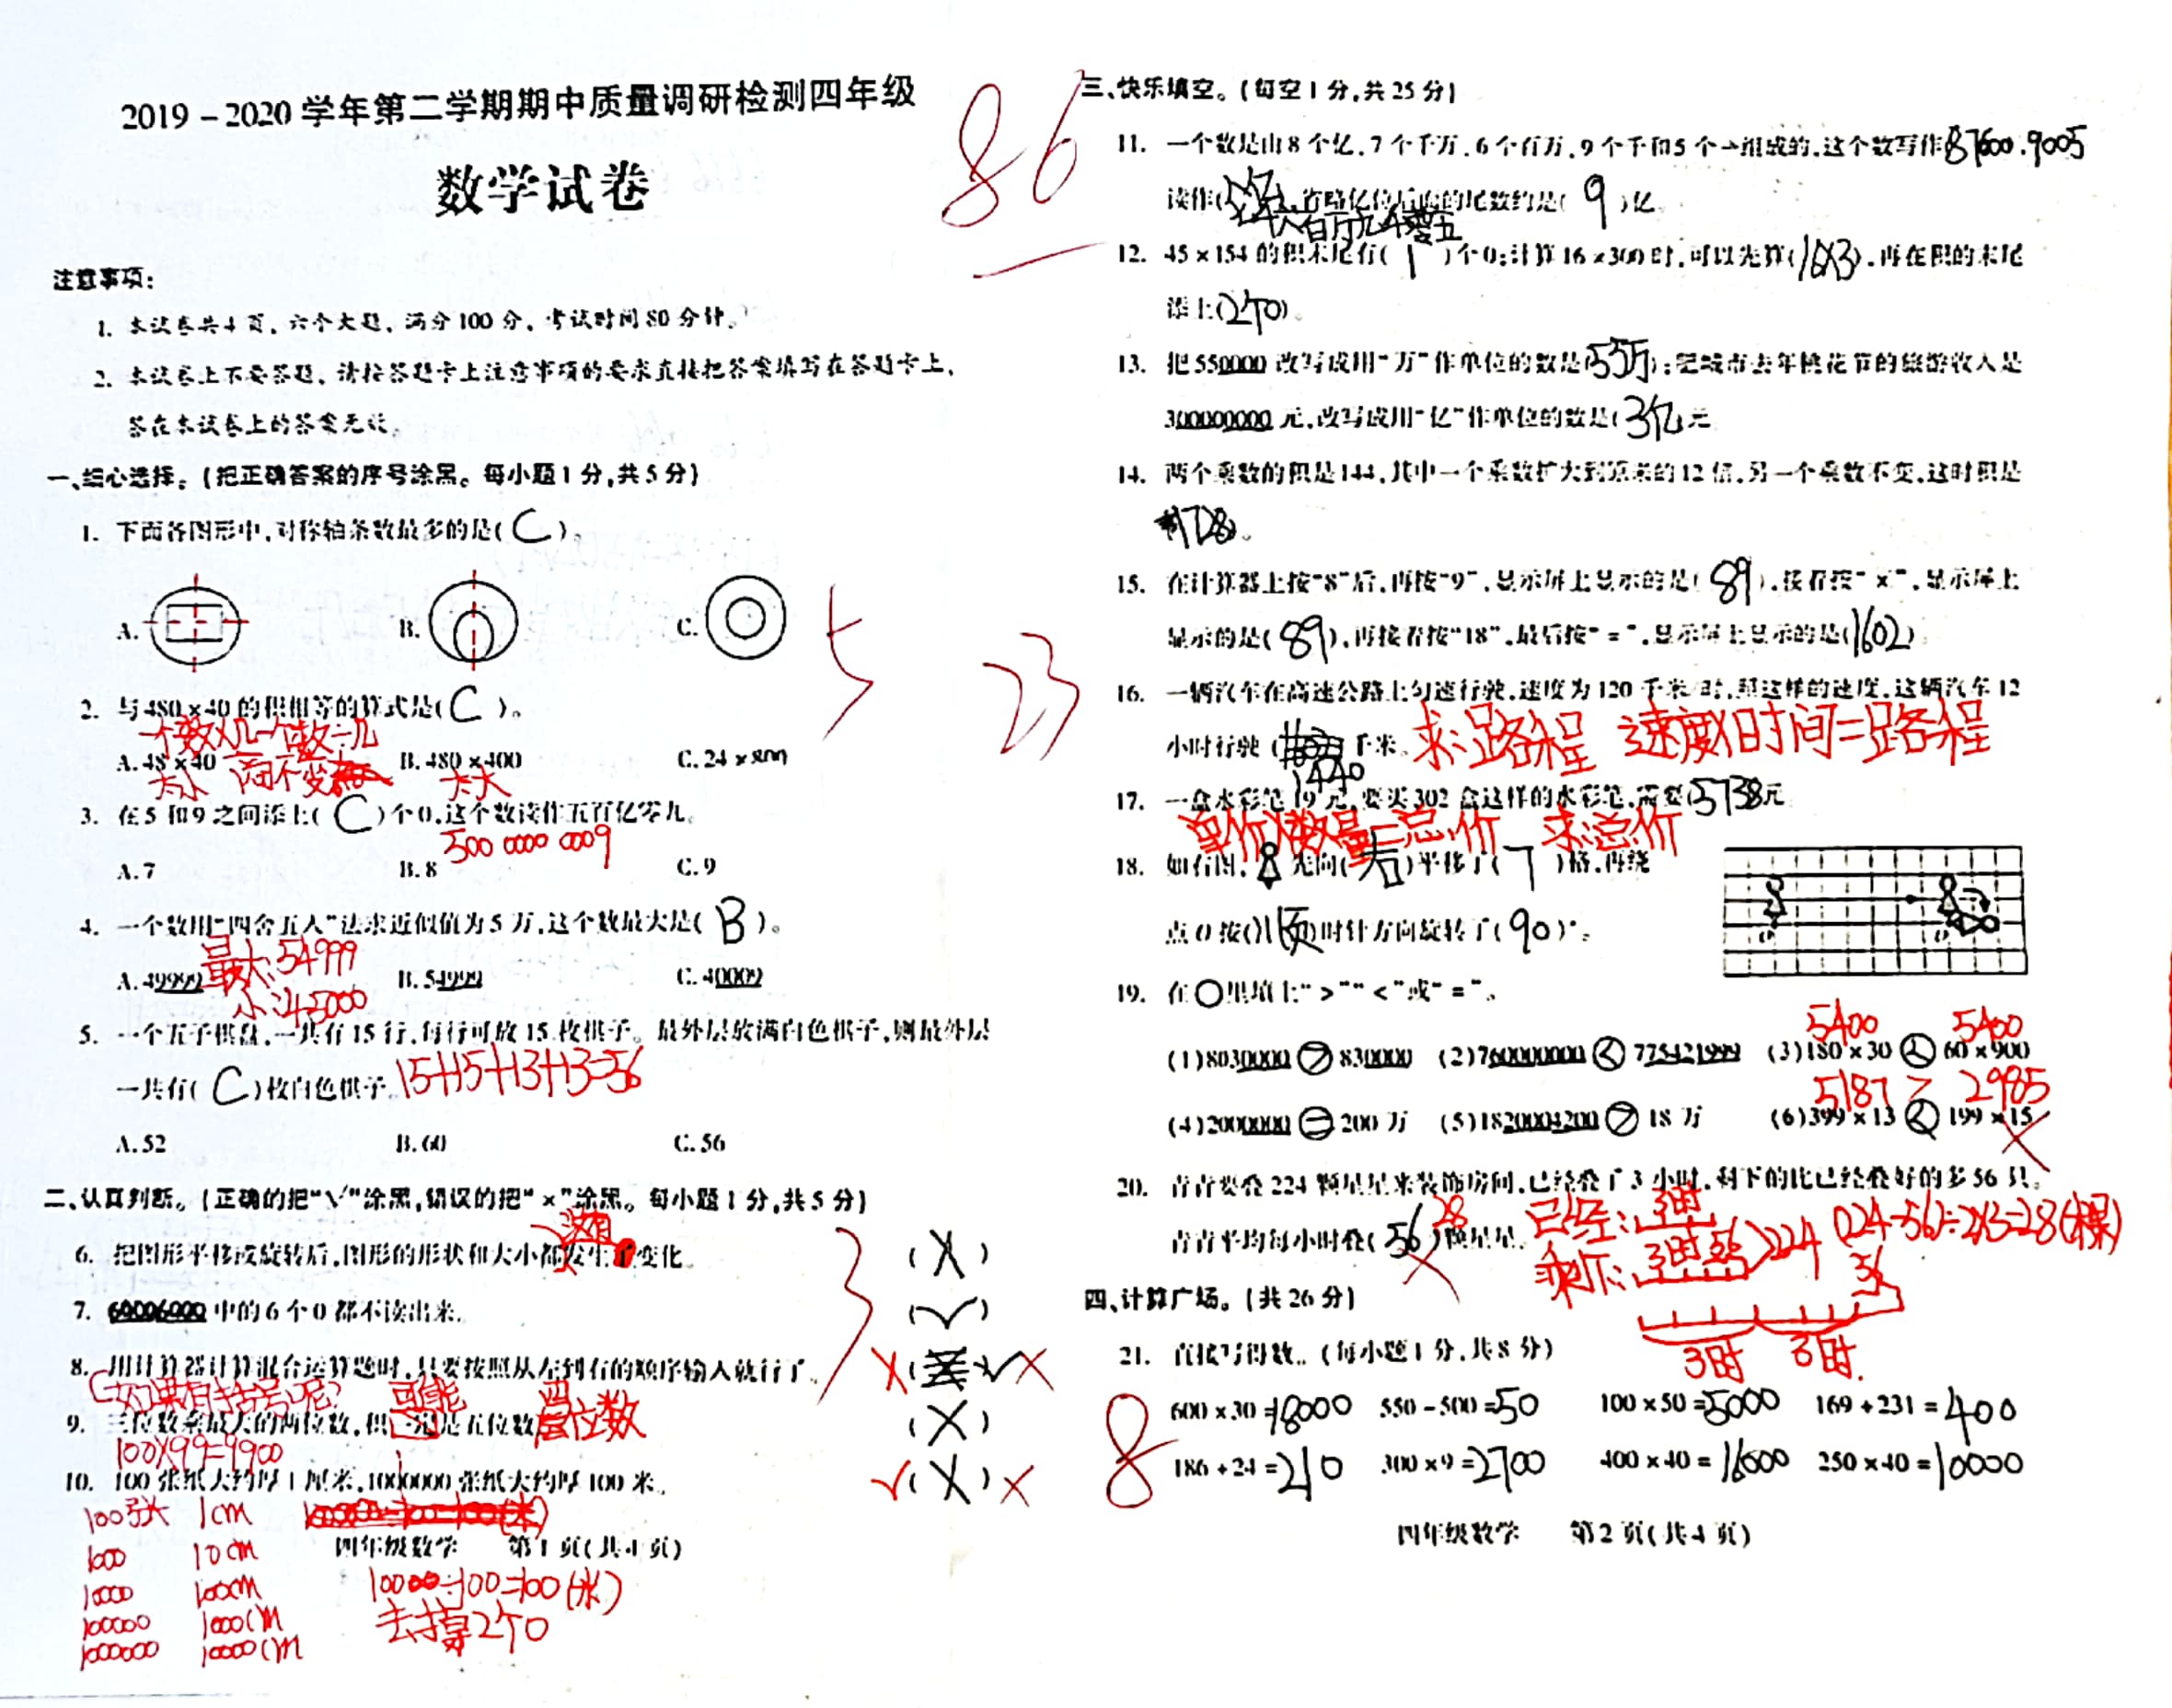 2019-2020学年第二学期期中质量调研检测四年级
数学试卷
86
注意事项:
1. 本试卷共4页,六个大题,满分100分,考试时间80分钟。
2. 本试卷上不要答题,请按答题卡上注意事项的要求直接把答案填写在答题卡上,
答在本试卷上的答案无效。
一、细心选择。(把正确答案的序号涂黑。每小题1分,共5分)
1. 下面各图形中,对称轴条数最多的是( C )。
A. B. C.
5
2. 与480×40的积相等的算式是( C )。
一个数×几一个数÷几
A.48×40 B.480×400 C.24×800
太小 商不变 太大
3. 在5和9之间添上( C )个0,这个数读作五百亿零九。
500 0000 0009
A.7 B.8 C.9
4. 一个数用"四舍五入"法求近似值为5万,这个数最大是( B )。
最大:54999
A.49999 B.54999 C.40009
小:45000
5. 一个五子棋盘,一共有15行,每行可放15枚棋子。最外层放满白色棋子,则最外层
一共有( C )枚白色棋子。15+15+13+13=56
A.52 B.60 C.56
二、认真判断。(正确的把"√"涂黑,错误的把"×"涂黑。每小题1分,共5分)
没有
6. 把图形平移或旋转后,图形的形状和大小都发生了变化。 (X)
3
7. 60006000中的6个0都不读出来。 (✓)
8. 用计算器计算混合运算题时,只要按照从左到右的顺序输入就行了。 X ( ✓ X
如果有括号呢? 可能 四
9. 三位数乘最大的两位数,积一定是五位数。 位数 (X)
100X99=9900
10. 100张纸大约厚1厘米,1000000张纸大约厚100米。 ✓(X) X
100张 1cm
1000 10cm
四年级数学 第1页(共4页)
10000 100cm 10000÷100=100(米)
100000 1000cm 去掉2个0
1000000 10000cm
三、快乐填空。(每空1分,共25分)
23
11. 一个数是由8个亿,7个千万,6个百万,9个千和5个一组成的,这个数写作87600.9005
读作( ),省略亿位后面的尾数约是( 9 )亿。
七千六百万九千零五
12. 45×154的积末尾有( 1 )个0;计算16×300时,可以先算(16X3),再在积的末尾
添上(2个0)。
13. 把550000改写成用"万"作单位的数是(55万);肥城市去年桃花节的旅游收入是
300000000元,改写成用"亿"作单位的数是(3亿)元。
14. 两个乘数的积是144,其中一个乘数扩大到原来的12倍,另一个乘数不变,这时积是
(1728)。
15. 在计算器上按"8"后,再按"9",显示屏上显示的是( 89 ),接着按"×",显示屏上
显示的是( 89 ),再接着按"18",最后按"=",显示屏上显示的是(1602)。
16. 一辆汽车在高速公路上匀速行驶,速度为120千米/时,照这样的速度,这辆汽车12
小时行驶( )千米。 求:路程 速度X时间=路程
1440
17. 一盒水彩笔19元,要买302盒这样的水彩笔,需要(5738元
单价X数量=总价 求:总价
18. 如右图, 先向(右)平移了( 7 )格,再绕
点O按(顺)时针方向旋转了( 90 )°。
19. 在○里填上">""<"或"="。
5400 5400
(1)8030000 > 830000 (2)760000000 < 775421999 (3)180×30 < 60×900
5187 > 2985
(4)2000000 = 200万 (5)1820004200 > 18万 (6)399×13 < 199×15 X
20. 青青要叠224颗星星来装饰房间,已经叠了3小时,剩下的比已经叠好的多56只。
青青平均每小时叠( 56 28 )颗星星。
X
已经:3时
剩下:3时 56 >224
(224-56)÷2÷3=28(棵)
56
3时 3时.
四、计算广场。(共26分)
21. 直接写得数。(每小题1分,共8分)
8
600×30=18000 550-500=50 100×50=5000 169+231=400
186+24=210 300×9=2700 400×40=16000 250×40=10000
四年级数学 第2页(共4页)